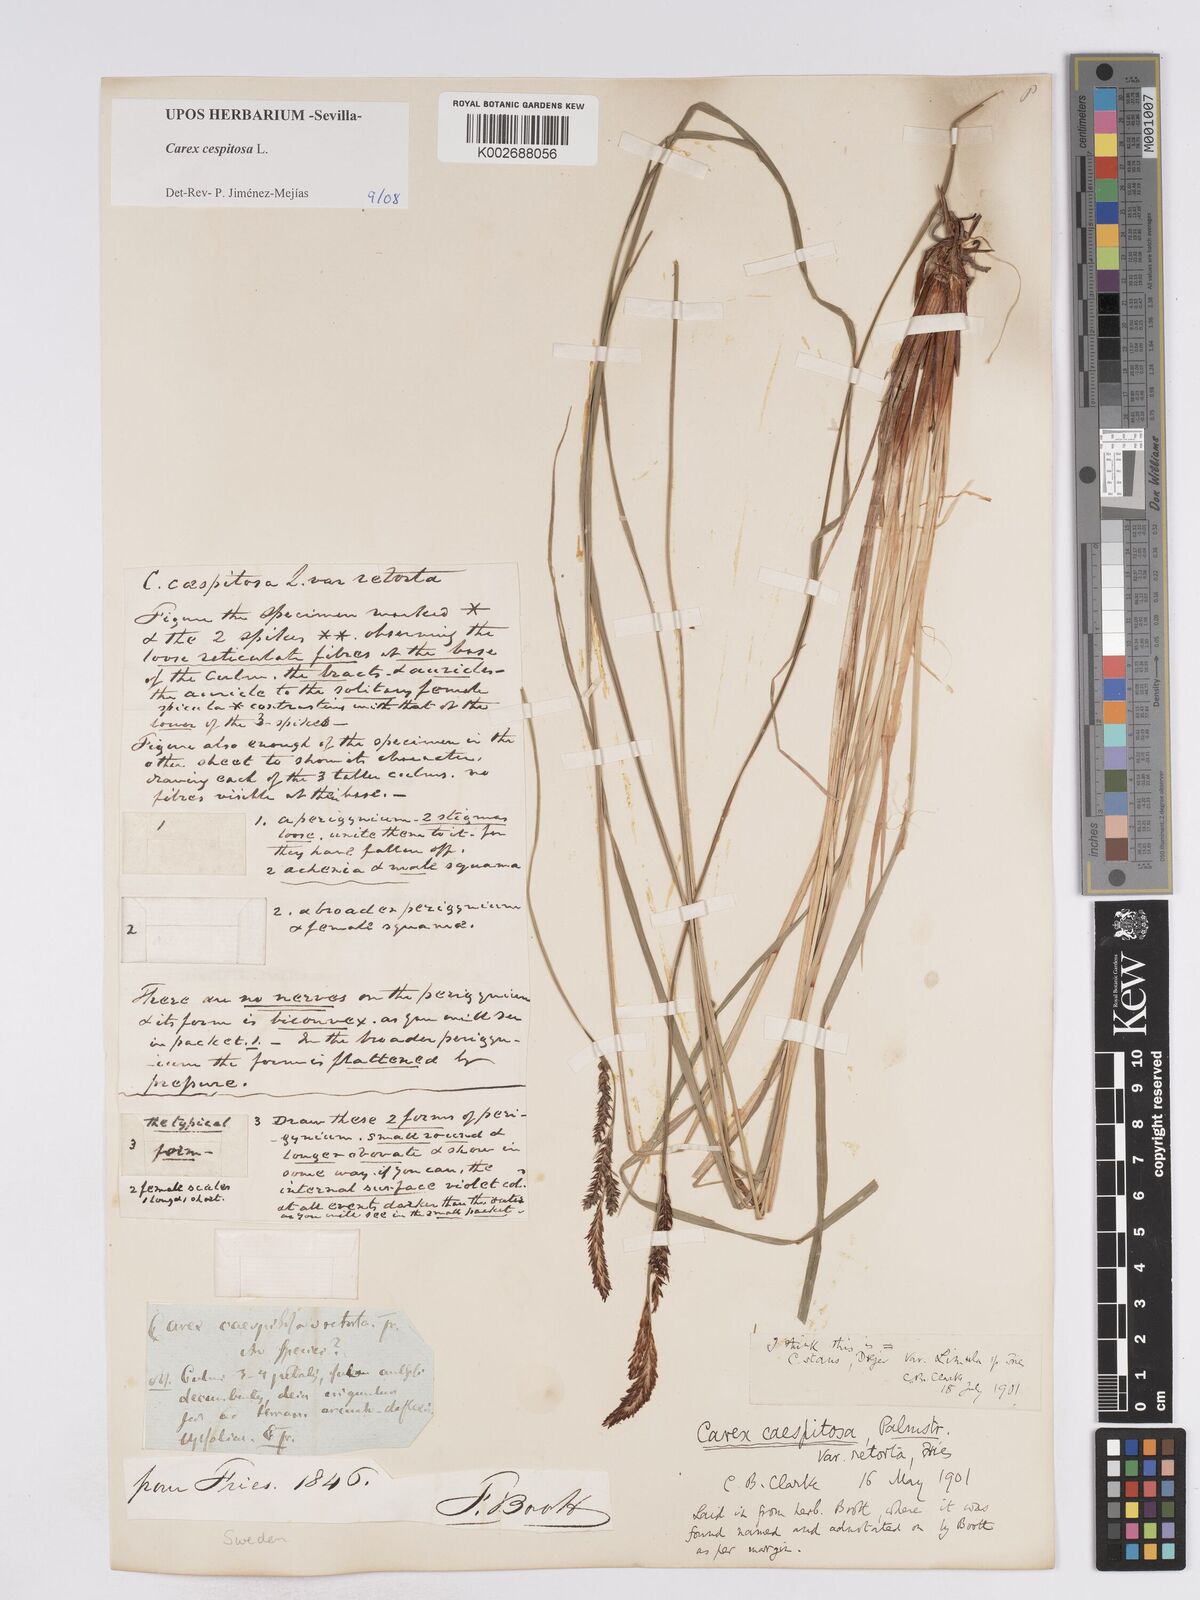 UPOS HERBARIUM -Sevilla-
Carex cespitosa L.
Det-Rev- P. Jiménez-Mejías 9/08
ROYAL BOTANIC GARDENS KEW
K002688056
C. cæspitosa L. var retorta
Figure the specimen marked *
& the 2 spikes **. observing the
loose reticulate fibres at the base
of the Culm. the bracts & auricles-
the auricle to the solitary female
spicula * contrasting with that of the
lower of the 3 spikes-
Figure also enough of the specimen in the
other sheet to show its character,
drawing each of the 3 taller culms. no
fibres visible at the base. -
1
1. a perigynium - 2 stigmas
loose. unite them to it - for
they have fallen off.
2 achenia & male squama
2
2. a broader perigynium
& female squamæ.
There are no nerves on the perigynium
& its form is biconvex. as you will see
in packet. 1. - In the broader perigyn-
-ium the form is flattened by
pressure.
the typical
3 form-
2 female scales
1 long & 1 short.
3 Draw these 2 forms of peri-
-gynium. small round &
longer obovate & show in
some way. if you can, the
internal surface violet cold.
at all events darker than the outer
as you will see in the small packet-
Carex caespitosa retorta. Fr.
An species?
Culmi 3-4 pedales,
Fr.
from Fries. 1846.
F. Boott
Sweden
I think this is =
C. stans, Drejer var. Limula sp Fries
C.B. Clarke
18 July 1901
Carex caespitosa, Palmstr.
Var. retorta, Fries
C. B. Clarke 16 May 1901
Laid in from herb. Boott, where it was
found named and adnotated on by Boott
as per margin.
centimeters
inches
M001007
Don Williams
Density
Kew
Royal Botanic Gardens
copyright reserved
0 1 2 3 4 5 6 7 8 9 10
cm